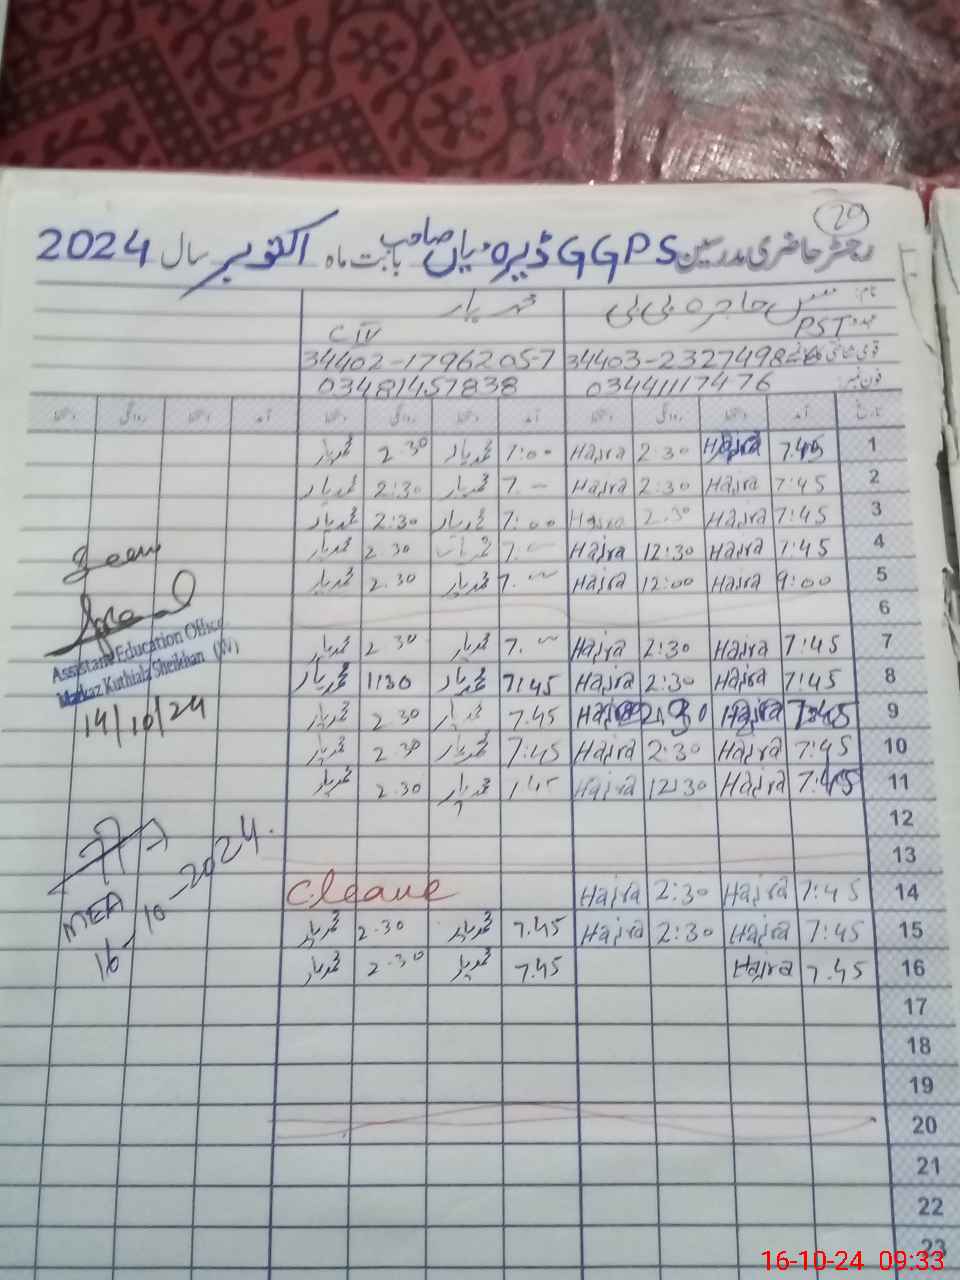 29
رجسٹر حاضری مدرسین GGPS ڈیرہ میاں صاحب بابت ماہ اکتوبر سال 2024
نام: مس حاجرہ بی بی شہریار
عہدہ PST CIV
34402-1796205-7
فون نمبر: 03441117476 03481457838
تاریخ آمد دستخط روانگی دستخط آمد دستخط روانگی دستخط آمد دستخط روانگی دستخط
1 7.45 Hajra 2:30 Hajra 7:00 شہریار 2.30 شہریار
2 7:45 Hajra 2:30 Hajra 7. — شہریار 2:30 شہریار
3 7:45 Hajra 2.30 Hajra 7:00 شہریار 2:30 شہریار
4 7:45 Hajra 12:30 Hajra 7. — شہریار 2.30 شہریار
5 9:00 Hajra 12:00 Hajra 7. — شہریار 2.30 شہریار
6
7 7:45 Hajra 2:30 Hajra 7. — شہریار 2 30 شہریار
8 7:45 Hajra 2:30 Hajra 7:45 شہریار 1:30 شہریار
9 7:45 Hajra 2:30 Hajra 7.45 شہریار 2.30 شہریار
10 7:45 Hajra 2:30 Hajra 7:45 شہریار 2.30 شہریار
11 7:45 Hajra 12:30 Hajra شہریار 2.30 شہریار
12
13
14 7:45 Hajra 2:30 Hajra Cleave
15 7:45 Hajra 2:30 Hajra 7.45 شہریار 2.30 شہریار
16 7.45 Hajra 7.45 شہریار 2.30 شہریار
17
18
19
20
21
22
23
Seen
Assistant Education Officer
Markaz Kuthiala Sheikhan (W)
14/10/24
MEA
16-10-2024.
16-10-24 09:33